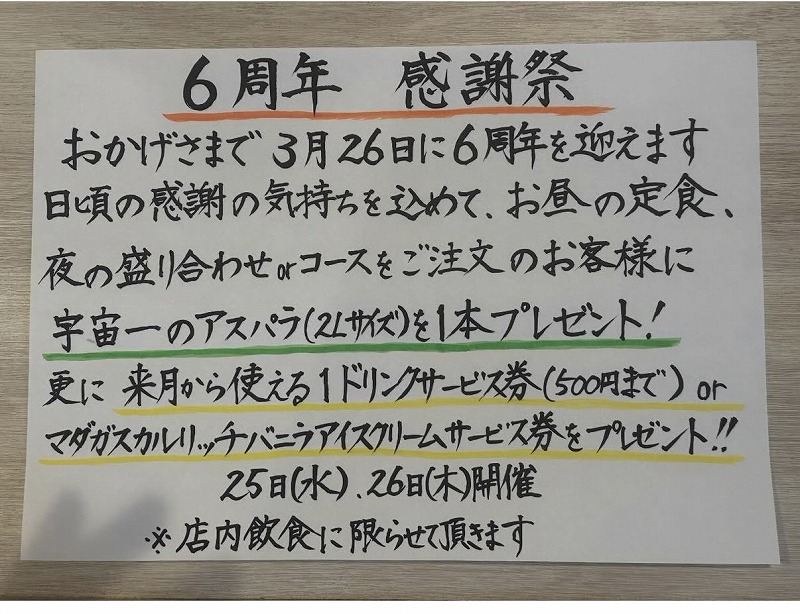 6周年 感謝祭
おかげさまで3月26日に6周年を迎えます
日頃の感謝の気持ちを込めて、お昼の定食、
夜の盛り合わせorコースをご注文のお客様に
宇宙一のアスパラ(2Lサイズ)を1本プレゼント!
更に 来月から使える1ドリンクサービス券(500円まで) or
マダガスカルリッチバニラアイスクリームサービス券をプレゼント!!
25日(水)、26日(木)開催
※店内飲食に限らせて頂きます